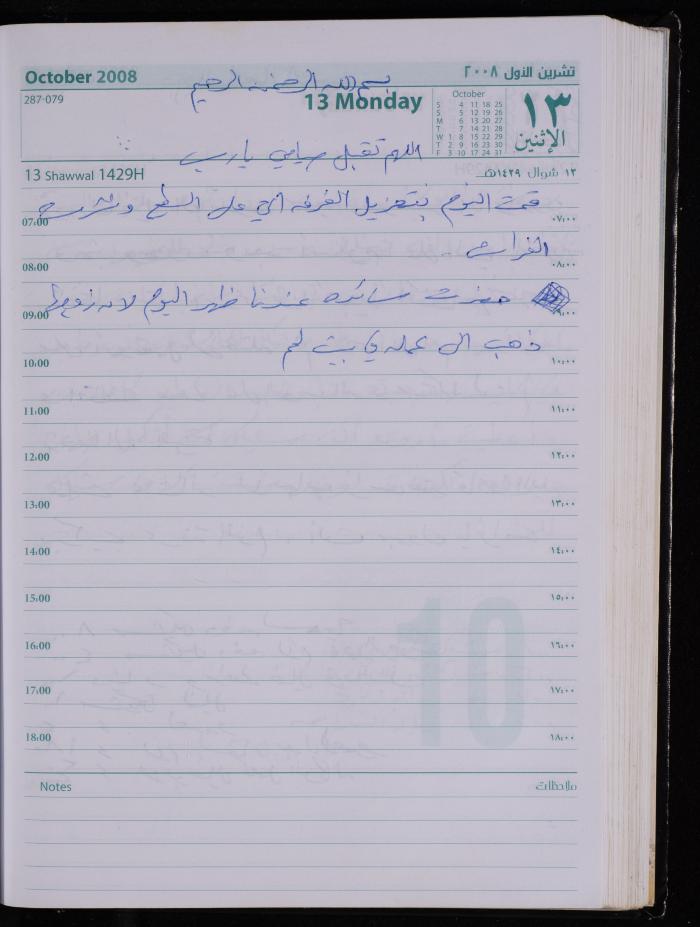 October 2008
تشرين الأول ٢٠٠٨
بسم الله الرحمن الرحيم
287-079
13 Monday
October
S 4 11 18 25
S 5 12 19 26
M 6 13 20 27
T 7 14 21 28
W 1 8 15 22 29
T 2 9 16 23 30
F 3 10 17 24 31
١٣
الإثنين
اللهم تقبل صيامي يا رب
13 Shawwal 1429H
١٣ شوال ١٤٢٩هـ
قمت اليوم بتعزيل الغرفه التي على السطح ونشرت
07:00 ٠٧:٠٠
الفراش
08:00 ٠٨:٠٠
حضرت سائده عندنا ظهر اليوم لان زوجها
09:00 ٠٩:٠٠
ذهب الى عمله في بيت لحم
10:00 ١٠:٠٠
11:00 ١١:٠٠
12:00 ١٢:٠٠
13:00 ١٣:٠٠
14:00 ١٤:٠٠
15:00 ١٥:٠٠
16:00 ١٦:٠٠
17:00 ١٧:٠٠
18:00 ١٨:٠٠
10
Notes ملاحظات